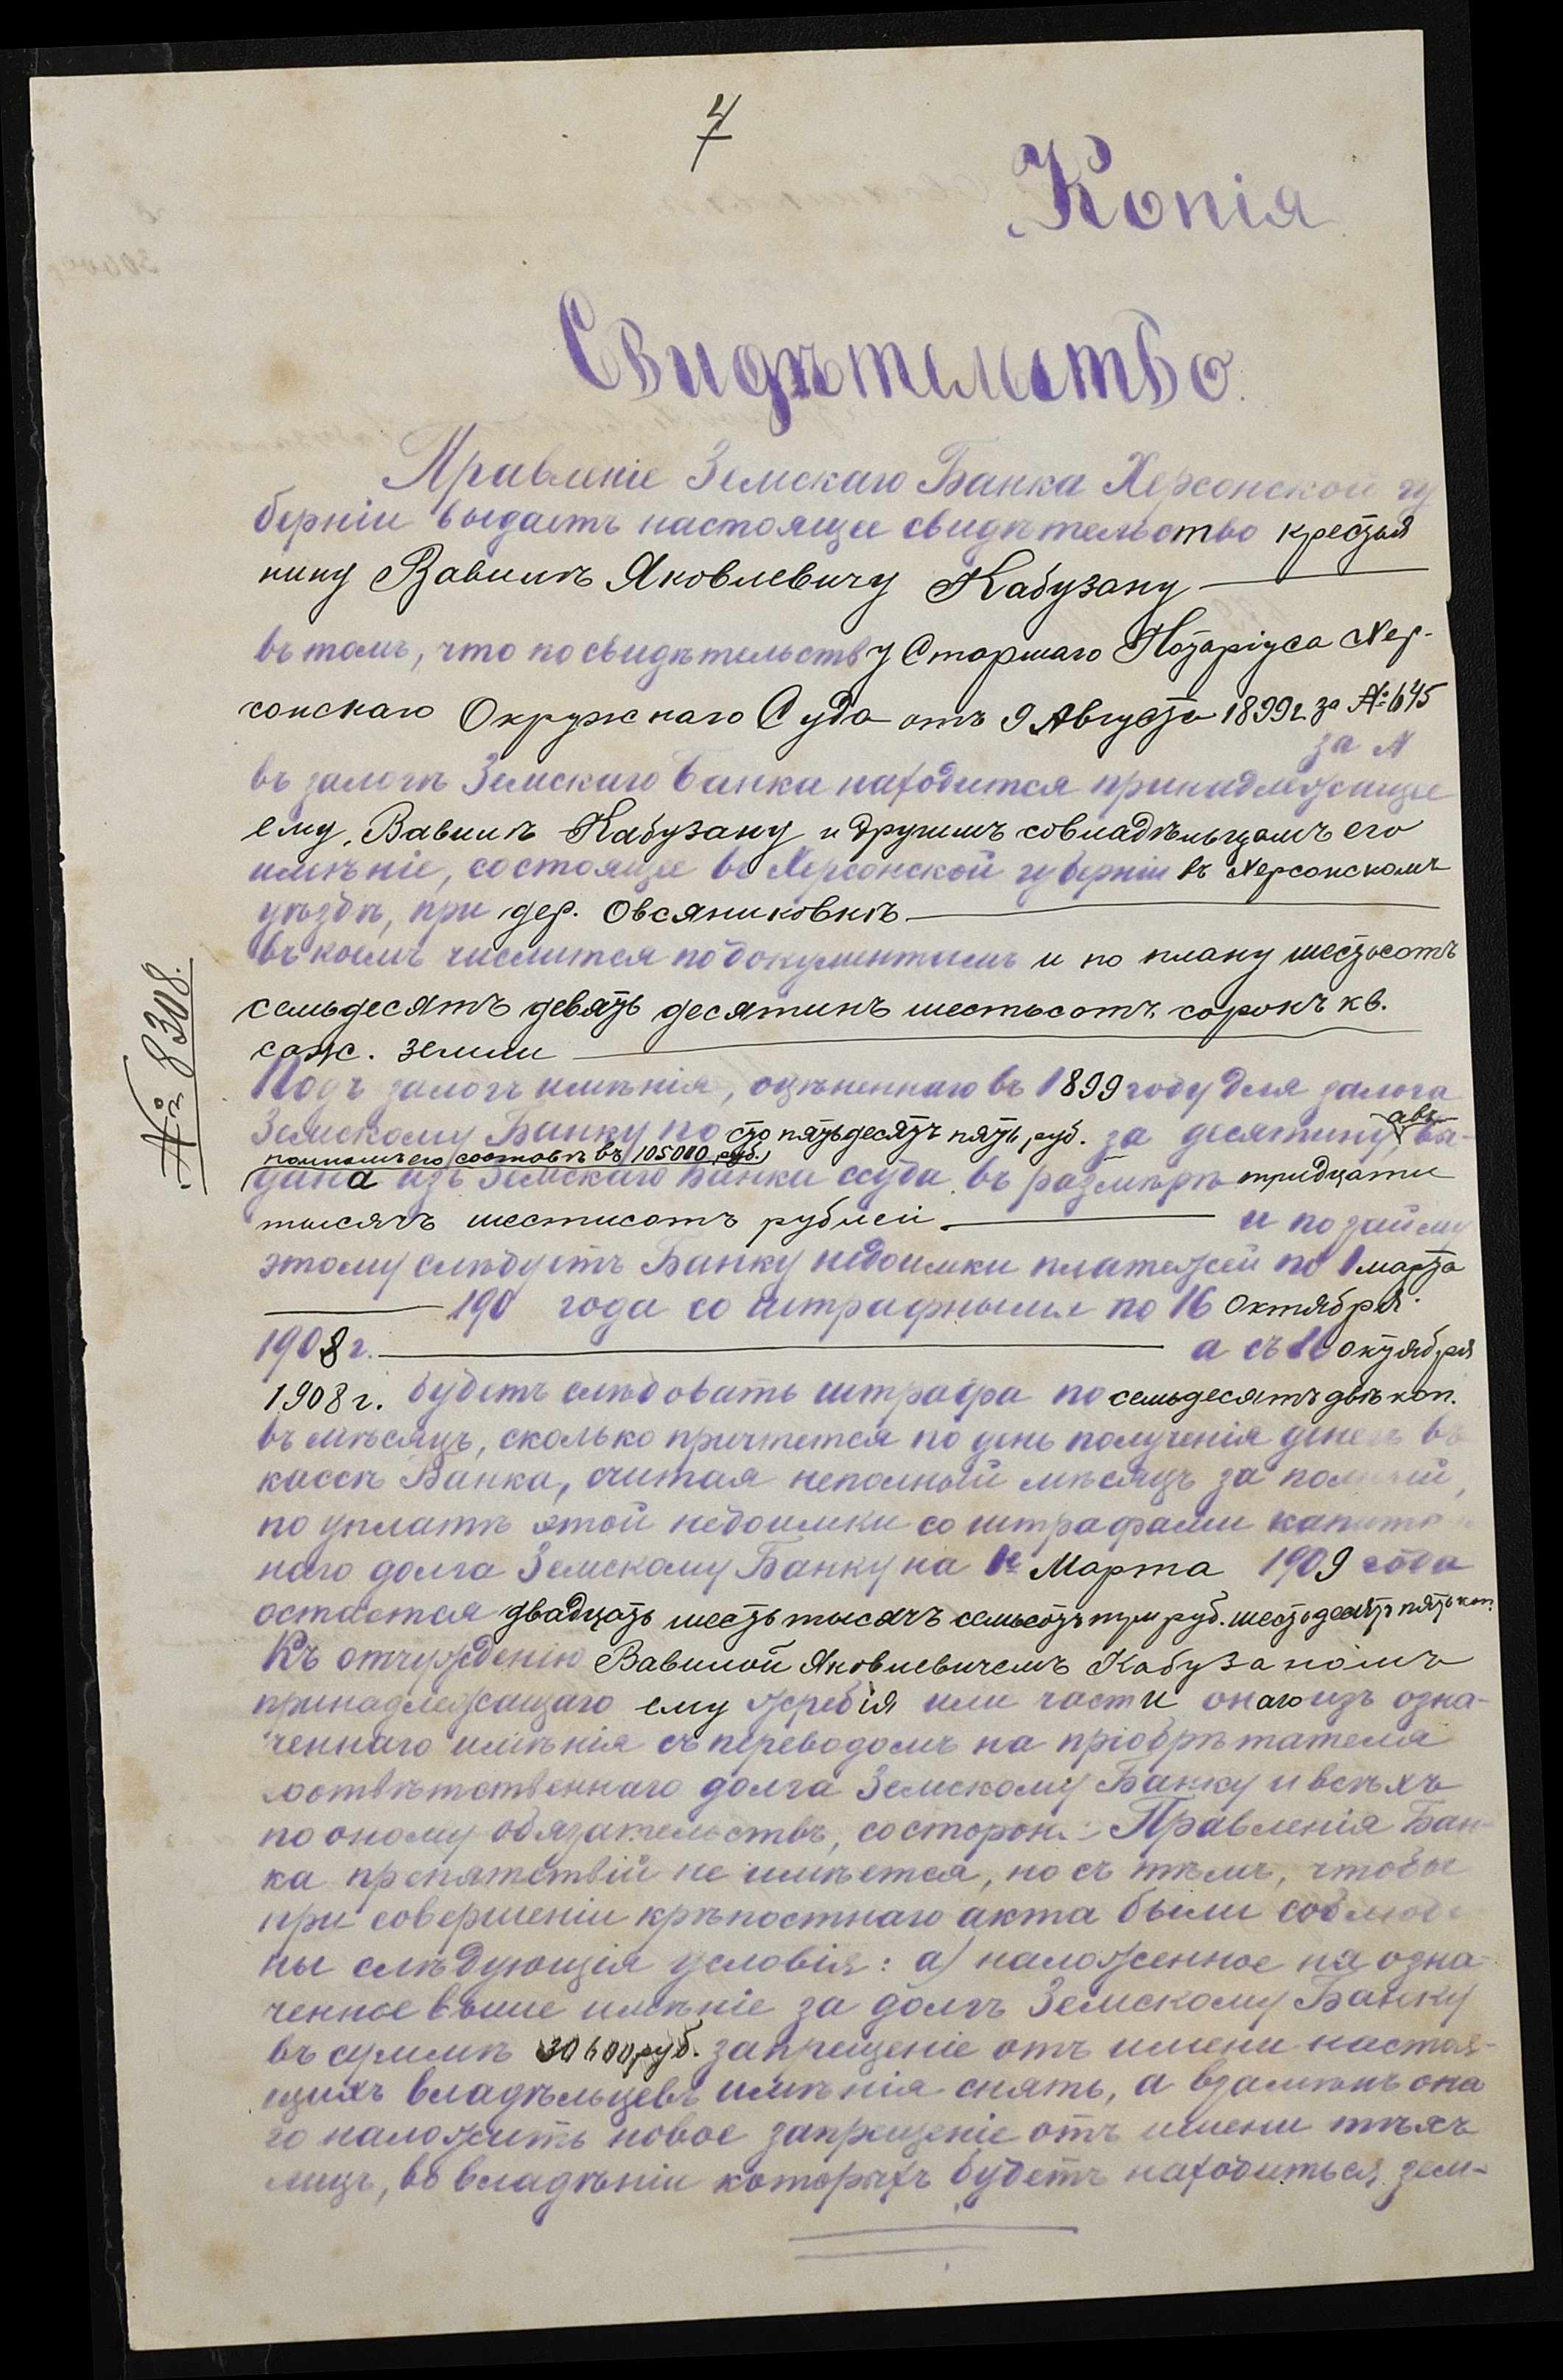 4
Копія
Свидѣтельство.
Правленіе Земскаго Банка Херсонской гу
берніи выдаетъ настоящее свидѣтельство крестья
нину Вавилѣ Яковлевичу Кабузану
въ томъ, что по свидѣтельству Старшаго Нотаріуса Хер-
сонскаго Окружнаго Суда отъ 9 Августа 1899 г. за № 645
за №
въ залогѣ Земскаго Банка находится принадлежащее
ему, Вавилѣ Кабузану и другимъ совладѣльцамъ его
имѣніе, состоящее въ Херсонской губерніи въ Херсонскомъ
уѣздѣ, при дер. Овсяниковкѣ
въ коемъ числится по документамъ и по плану шестьсотъ
семьдесятъ девять десятинъ шестьсотъ сорокъ кв.
саж. земли
№ 8308.
Подъ залогъ имѣнія, оцѣненнаго въ 1899 году для залога
Земскому Банку по сто пятьдесятъ пять руб. за десятину, а въ вы-
полномъ его составѣ въ 105000 руб.,
дана изъ Земскаго Банка ссуда въ размѣрѣ тридцати
тысячъ шестисотъ рублей и по займу
этому слѣдуетъ Банку недоимки платежей по 1 марта
190 года со штрафными по 16 Октября
1908 г. а съ 16 октября
1908 г. будетъ слѣдовать штрафа по семьдесятъ двѣ коп.
въ мѣсяцъ, сколько причтется по день полученія денегъ въ
кассѣ Банка, считая неполный мѣсяцъ за полный,
по уплатѣ этой недоимки со штрафами капиталь
наго долга Земскому Банку на 1е Марта 1909 года
остается двадцать шесть тысячъ семьсотъ три руб. шестьдесятъ пять коп.
Къ отчужденію Вавилой Яковлевичемъ Кабузаномъ
принадлежащаго ему жребія или части онаго изъ озна-
ченнаго имѣнія съ переводомъ на пріобрѣтателя
соотвѣтственнаго долга Земскому Банку и всѣхъ
по оному обязательствъ, со стороны Правленія Бан-
ка препятствій не имѣется, но съ тѣмъ, чтобы
при совершеніи крѣпостнаго акта были соблюде
ны слѣдующія условія: а) наложенное на озна-
ченное выше имѣніе за долгъ Земскому Банку
въ суммѣ 30600 руб. запрещеніе отъ имени настоя-
щихъ владѣльцевъ имѣнія снять, а взамѣнъ она
го наложить новое запрещеніе отъ имени тѣхъ
лицъ, во владѣніи которыхъ будетъ находиться зем-